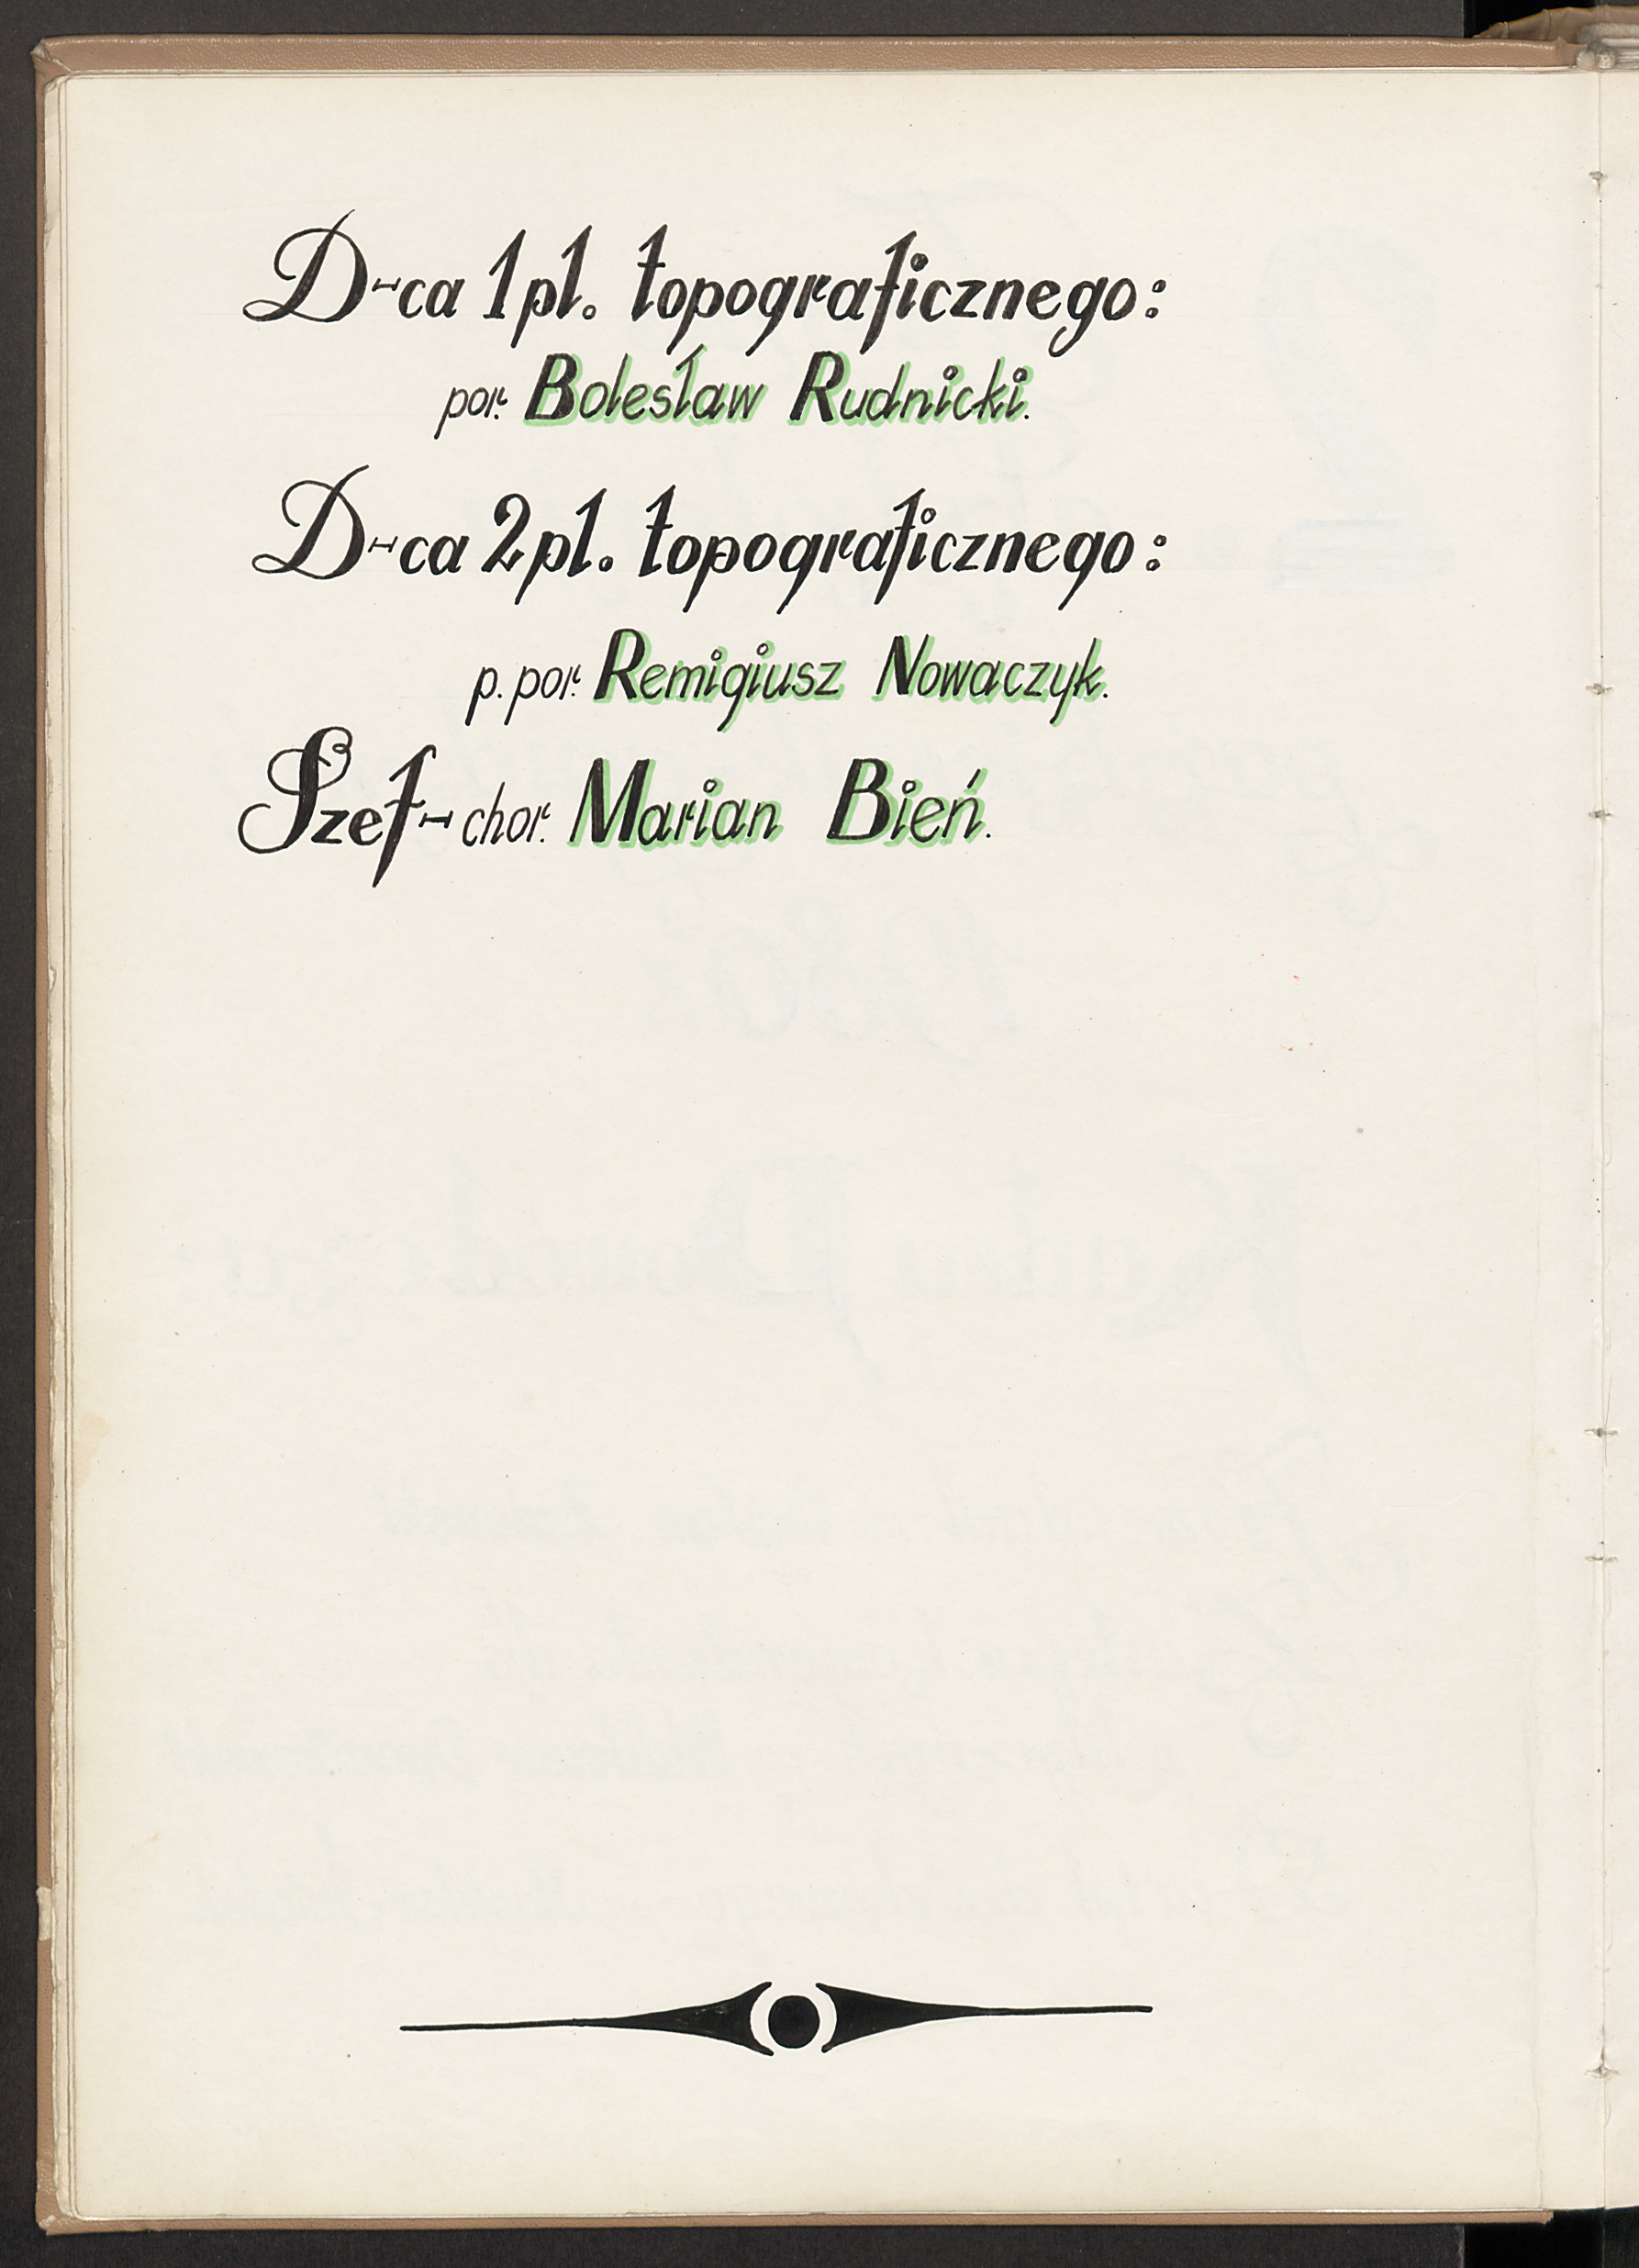 D-ca 1 pl. topograficznego:
por. Bolesław Rudnicki.
D-ca 2 pl. topograficznego:
p. por. Remigiusz Nowaczyk.
Szef - chor. Marian Bień.